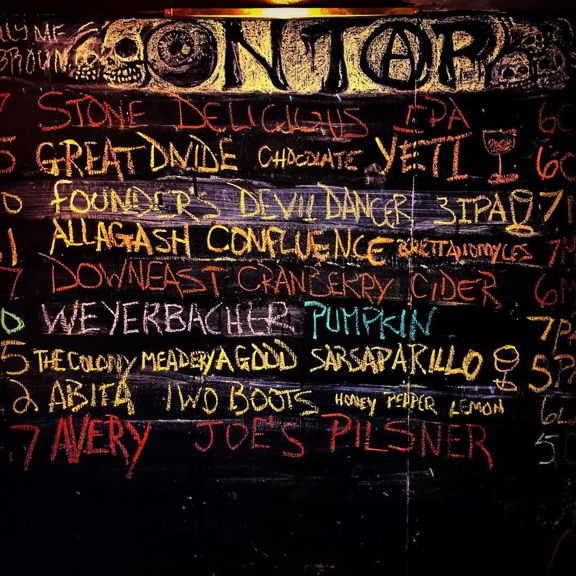 ON TAP
STONE DELICIOUS IPA
5 GREAT DIVIDE CHOCOLATE YETI 6
0 FOUNDER'S DEVIL DANCER 3IPA 7
.1 ALLAGASH CONFLUENCE BRETTANOMYCES 7
7 DOWNEAST CRANBERRY CIDER 6
0 WEYERBACHER PUMPKIN 7P
5 THE COLONY MEADERY A GOOD SARSAPARILLO 5P
2 ABITA TWO BOOTS HONEY PEPPER LEMON 6
.7 AVERY JOE'S PILSNER 5.